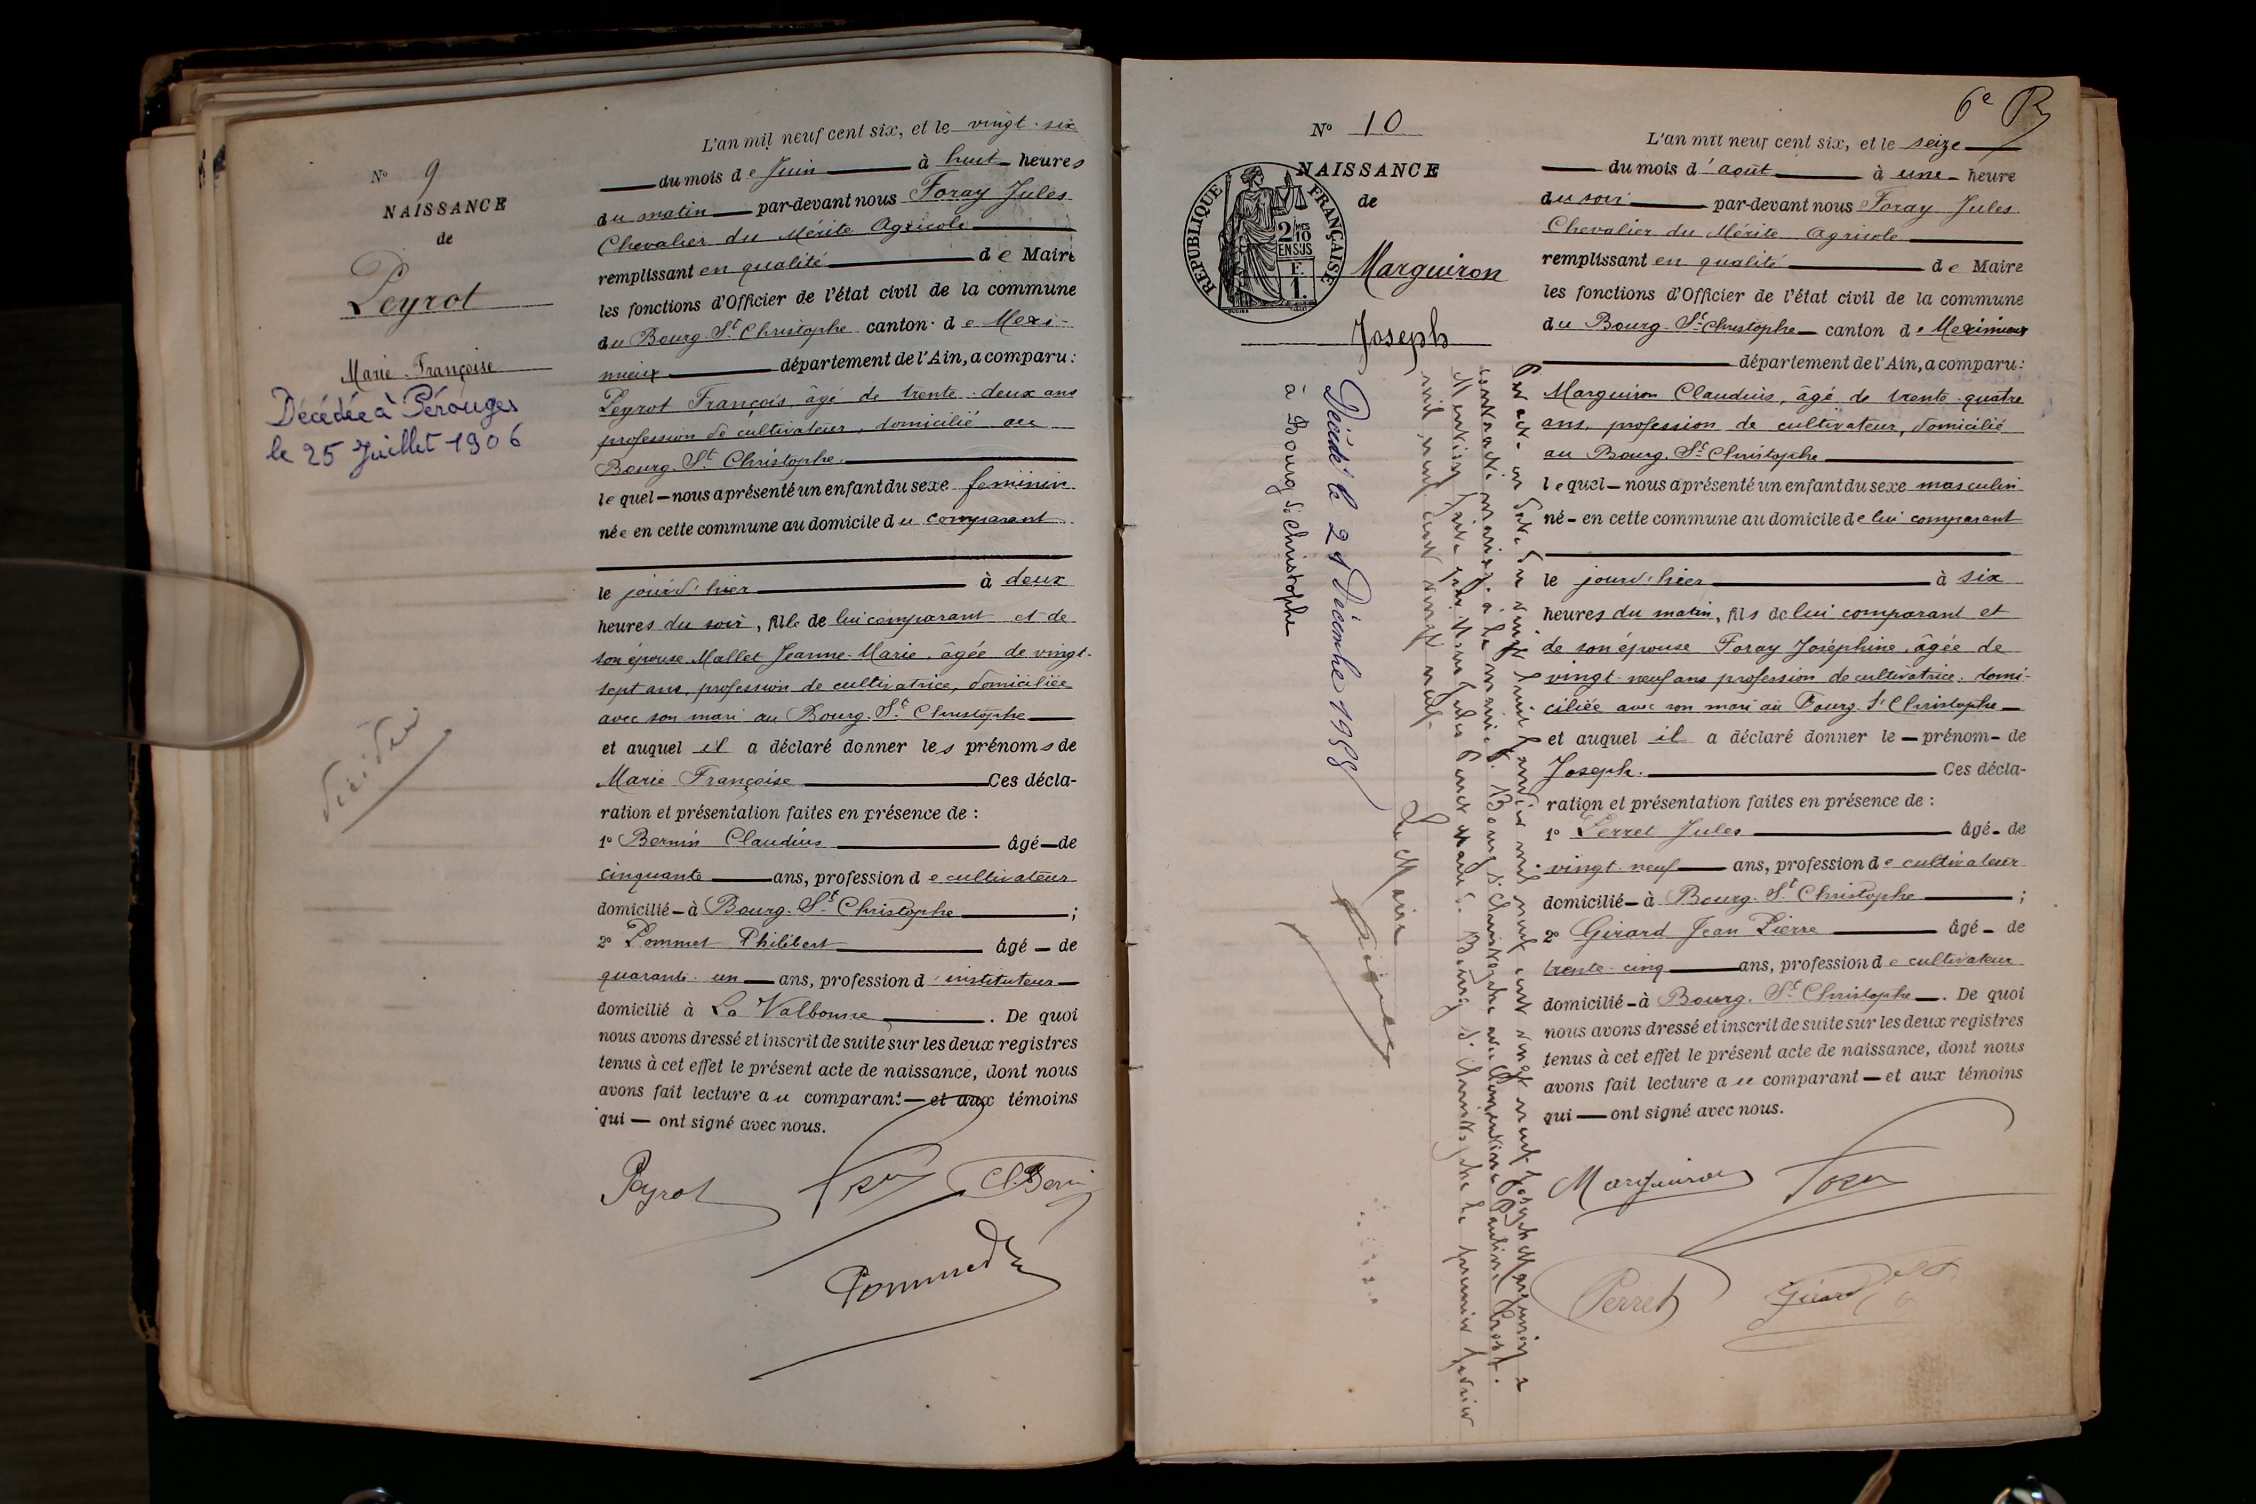 N° 9
NAISSANCE
de
Peyrot
Marie Françoise
Décédée à Pérouges
le 25 Juillet 1906
L'an mil neuf cent six, et le vingt-six
du mois de Juin à huit heures
du matin par-devant nous Foray Jules
Chevalier du Mérite Agricole
remplissant en qualité de Maire
les fonctions d'Officier de l'état civil de la commune
du Bourg-St Christophe canton de Mexi-
mieux département de l'Ain, a comparu:
Peyrot François, âgé de trente-deux ans
profession de cultivateur, domicilié au
Bourg-St Christophe.
lequel nous a présenté un enfant du sexe féminin
née en cette commune au domicile du comparant
le jour d'hier à deux
heures du soir, fille de lui comparant et de
son épouse Mallet Jeanne-Marie, âgée de vingt-
sept ans, profession de cultivatrice, domiciliée
avec son mari au Bourg-St Christophe
et auquel il a déclaré donner les prénoms de
Marie Françoise Ces décla-
ration et présentation faites en présence de :
1° Bernin Claudius âgé de
cinquante ans, profession de cultivateur
domicilié à Bourg-St Christophe ;
2° Pommet Philibert âgé de
quarante-un ans, profession d'instituteur
domicilié à La Valbonne . De quoi
nous avons dressé et inscrit de suite sur les deux registres
tenus à cet effet le présent acte de naissance, dont nous
avons fait lecture au comparant et aux témoins
qui ont signé avec nous.
Peyrot
6e
N° 10
NAISSANCE
de
REPUBLIQUE FRANÇAISE
2/10
EN SUS
F.
1.
Marguiron
Joseph
Décédé le 21 Décembre 1988
à Bourg St Christophe
Par acte en date du vingt huit janvier mil neuf cent vingt neuf Joseph Marguiron a
contracté mariage à la mairie de Bourg St Christophe avec Clémentine Pauline
Mention faite par Nous Bourg St Christophe le premier février
mil neuf cent vingt neuf.
Le Maire
L'an mil neuf cent six, et le seize
du mois d'août à une heure
du soir par-devant nous Foray Jules
Chevalier du Mérite Agricole
remplissant en qualité de Maire
les fonctions d'Officier de l'état civil de la commune
du Bourg-St Christophe canton de Meximieux
département de l'Ain, a comparu:
Marguiron Claudius, âgé de trente-quatre
ans, profession de cultivateur, domicilié
au Bourg-St Christophe
lequel nous a présenté un enfant du sexe masculin
né en cette commune au domicile de lui comparant
le jour d'hier à six
heures du matin, fils de lui comparant et
de son épouse Foray Joséphine, âgée de
vingt-neuf ans profession de cultivatrice, domi-
ciliée avec son mari au Bourg-St Christophe
et auquel il a déclaré donner le prénom de
Joseph. Ces décla-
ration et présentation faites en présence de :
1° Perret Jules âgé de
vingt-neuf ans, profession de cultivateur
domicilié à Bourg-St Christophe ;
2° Girard Jean Pierre âgé de
trente-cinq ans, profession de cultivateur
domicilié à Bourg-St Christophe . De quoi
nous avons dressé et inscrit de suite sur les deux registres
tenus à cet effet le présent acte de naissance, dont nous
avons fait lecture au comparant et aux témoins
qui ont signé avec nous.
Marguiron Foray
Perret Girard